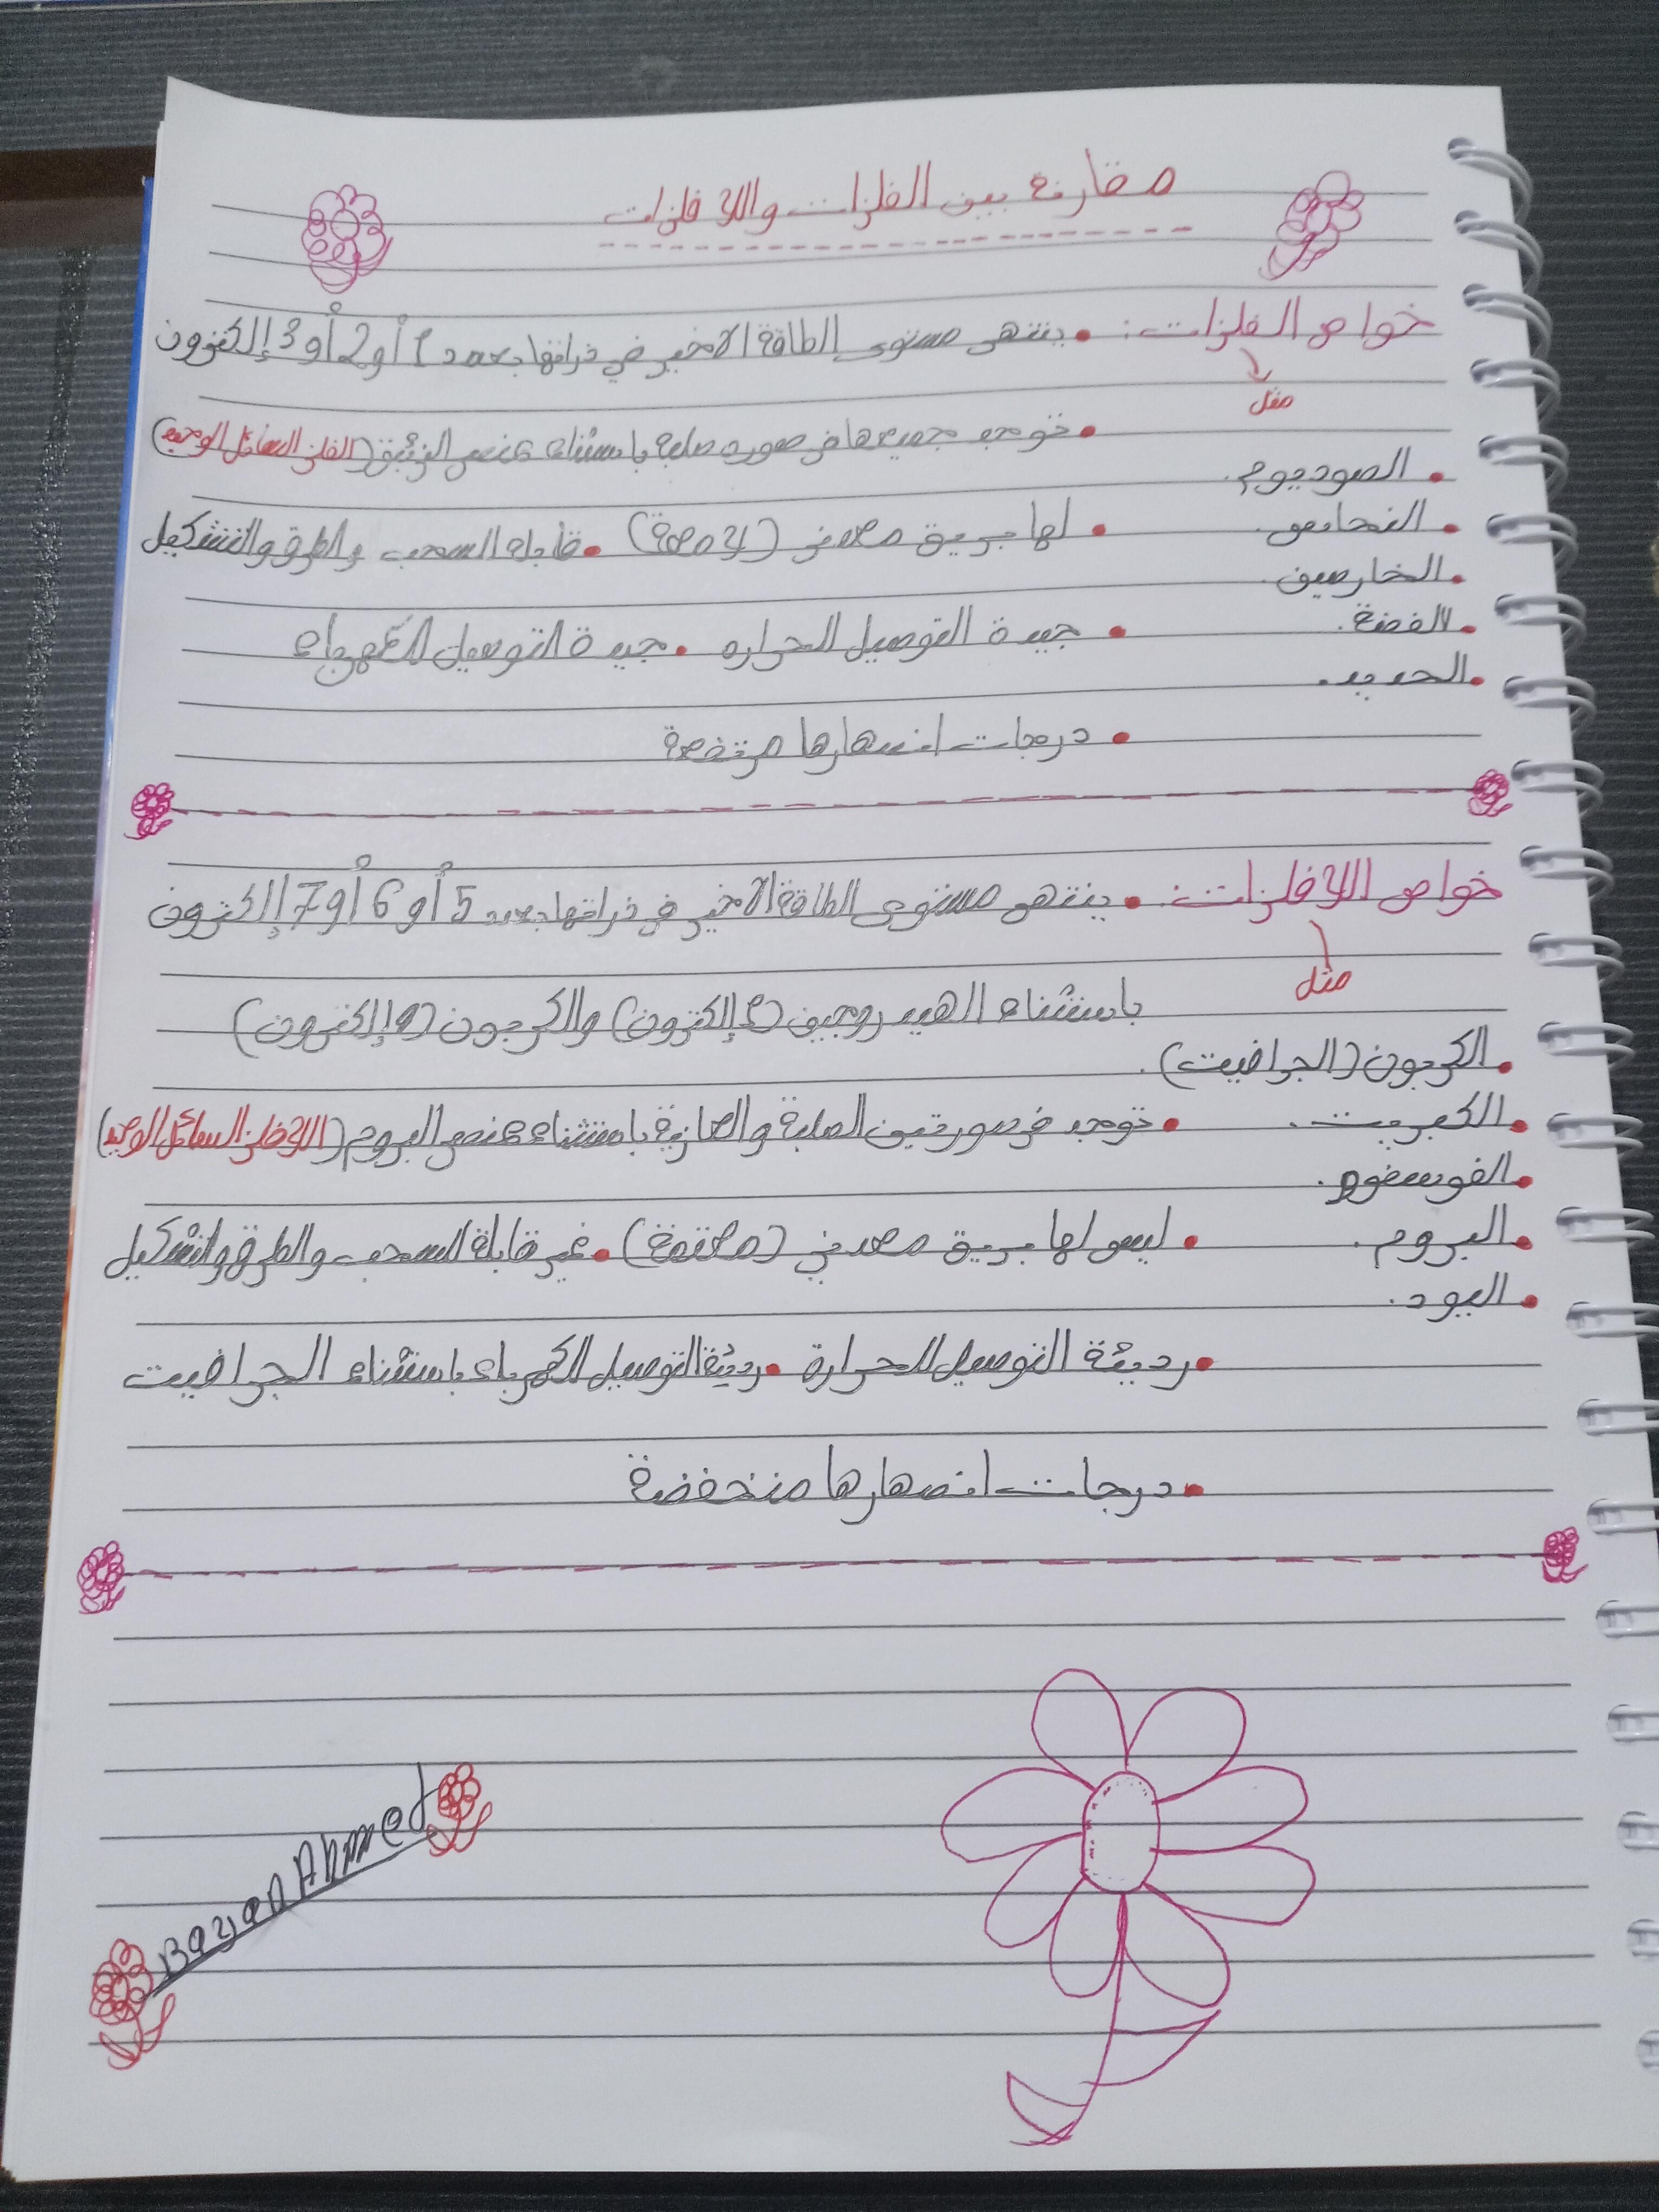 مقارنة بين الفلزات واللافلزات
خواص الفلزات: • ينتهى مستوى الطاقة الاخير في ذراتها بعدد 1 أو 2 أو 3 إلكترون
مثل
• توجد جميعها فى صوره صلبة باستثناء عنصر الزئبق (الفلز السائل الوحيد)
• الصوديوم.
• النحاس.
• لها بريق معدني (لامعة) • قابلة للسحب والطرق والتشكيل
• الخارصين.
• الفضة.
• جيدة التوصيل للحراره • جيدة التوصيل للكهرباء
• الحديد.
• درجات انصهارها مرتفعة
خواص اللافلزات: • ينتهى مستوى الطاقة الاخير فى ذراتها بعدد 5 أو 6 أو 7 إلكترون
مثل
باستثناء الهيدروجين (1 إلكترون) والكربون (4 إلكترون)
• الكربون (الجرافيت).
• الكبريت.
• توجد فى صورتين الصلبة والغازية باستثناء عنصر البروم (اللافلز السائل الوحيد)
• الفوسفور.
• البروم.
• ليس لها بريق معدني (معتمة) • غير قابلة للسحب والطرق والتشكيل
• اليود.
• رديئة التوصيل للحرارة • رديئة التوصيل للكهرباء باستثناء الجرافيت
• درجات انصهارها منخفضة
Bayan Ahmed